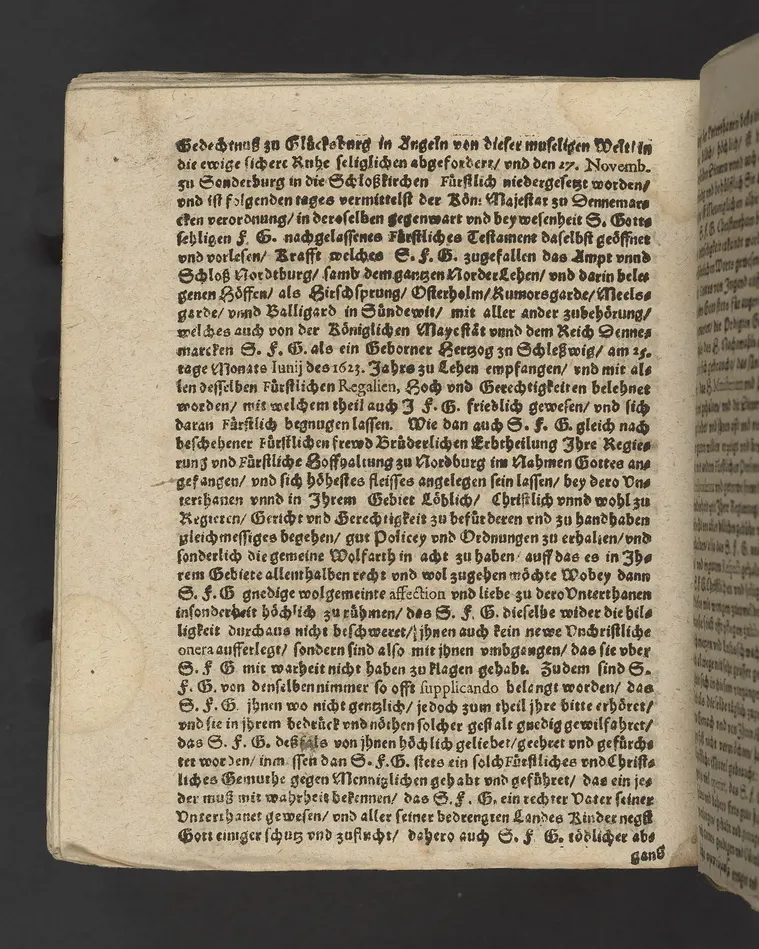 Gedechtnuß zu Glücksburg in Angeln von dieser museligen Welt/ in
die ewige sichere Ruhe seliglichen abgefordert/ vnd den 27. Novemb.
zu Sonderburg in die Schloßkirchen Fürstlich niedergesetzt worden/
vnd ist folgenden tages vermittelst der Kön: Majestat zu Dennemar-
cken verordnung/ in deroselben gegenwart vnd beywesenheit S. Gott-
sehligen F. G. nachgelassenes Fürstliches Testament daselbst geöffnet
vnd vorlesen/ Krafft welches S. F. G. zugefallen das Ampt vnnd
Schloß Nordtburg/ samb dem gantzen Norder Lehen/ vnd darin bele-
genen Höffen/ als Hirschsprung/ Osterholm/ Rumorsgarde/ Meels-
garde/ vnnd Balligard in Sündewit/ mit aller ander zubehörung/
welches auch von der Königlichen Mayestät vnnd dem Reich Denne-
marcken S. F. G. als ein Geborner Hertzog zu Schleßwig/ am 25.
tage Monats Iunij des 1623. Jahrs zu Lehen empfangen/ vnd mit al-
len desselben Fürstlichen Regalien, Hoch vnd Gerechtigkeiten belehnet
worden/ mit welchem theil auch J F. G. friedlich gewesen/ vnd sich
daran Fürstlich begnugen lassen. Wie dan auch S. F. G. gleich nach
beschehener Fürstlichen frewd Brüderlichen Erbtheilung Ihre Regie-
rung vnd Fürstliche Hoffhaltung zu Nordburg im Nahmen Gottes an-
gefangen/ vnd sich höhestes fleisses angelegen sein lassen/ bey dero Vn-
terthanen vnnd in Ihrem Gebiet Löblich/ Christlich vnnd wohl zu
Regieren/ Gericht vnd Gerechtigkeit zu befürderen vnd zu handhaben
gleichmessiges begehen/ gut Policey vnd Ordnungen zu erhalten/ vnd
sonderlich die gemeine Wolfarth in acht zu haben/ auff das es in Ih-
rem Gebiete allenthalben recht vnd wol zugehen möchte Wobey dann
S. F. G gnedige wolgemeinte affection vnd liebe zu dero Vnterthanen
insonderheit höchlich zu rühmen/ das S. F. G. dieselbe wider die bil-
ligkeit durchaus nicht beschweret/ jhnen auch kein newe Vnchristliche
onera aufferlegt/ sondern sind also mit jhnen vmbgangen/ das sie vber
S. F G. mit warheit nicht haben zu klagen gehabt. Zudem sind S.
F. G. von denselben nimmer so offt supplicando belangt worden/ das
S. F. G. jhnen wo nicht gentzlich/ jedoch zum theil jhre bitte erhöret/
vnd sie in jhrem bedrück vnd nöthen solcher gestalt gnedig gewilfahret/
das S. F. G. deßfals von jhnen höchlich geliebet/ geehret vnd gefürch-
tet worden/ inmassen dan S. F. G. stets ein solch Fürstliches vnd Christ-
liches Gemuthe gegen Menniglichen gehabt vnd geführet/ das ein je-
der muß mit wahrheit bekennen/ das S. F. G. ein rechter Vater seiner
Vnterthanet gewesen/ vnd aller seiner bedrengten Landes Kinder negst
Gott einiger schutz vnd zuflucht/ dahero auch S. F. G. tödlicher ab-
gang